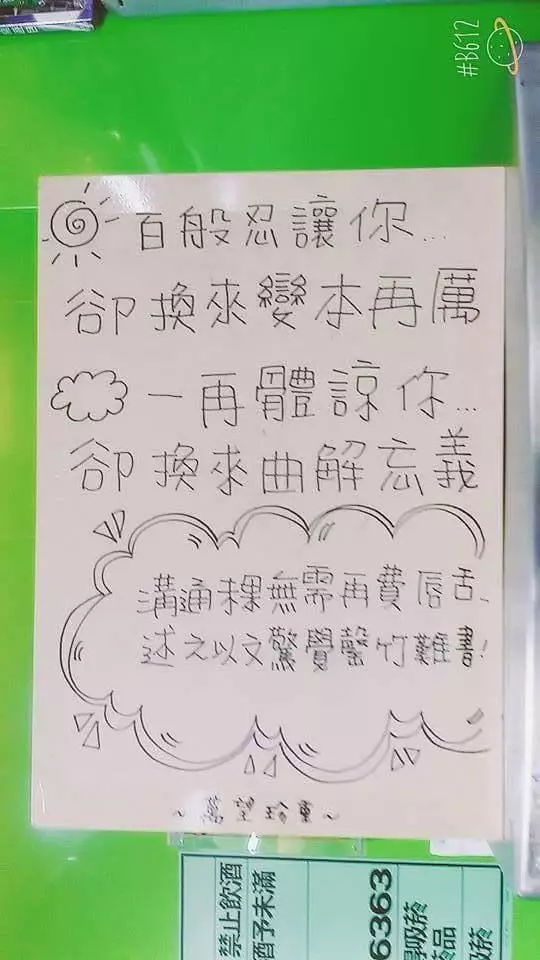 #B612
百般忍讓你...
卻換來變本再厲
一再體諒你...
卻換來曲解忘義
溝通粿無需再費唇舌、
述之以文驚覺罄竹難書!
~萬望珍重~
禁止飲酒
酒予未滿
6363
得吸菸
菸品
吸菸